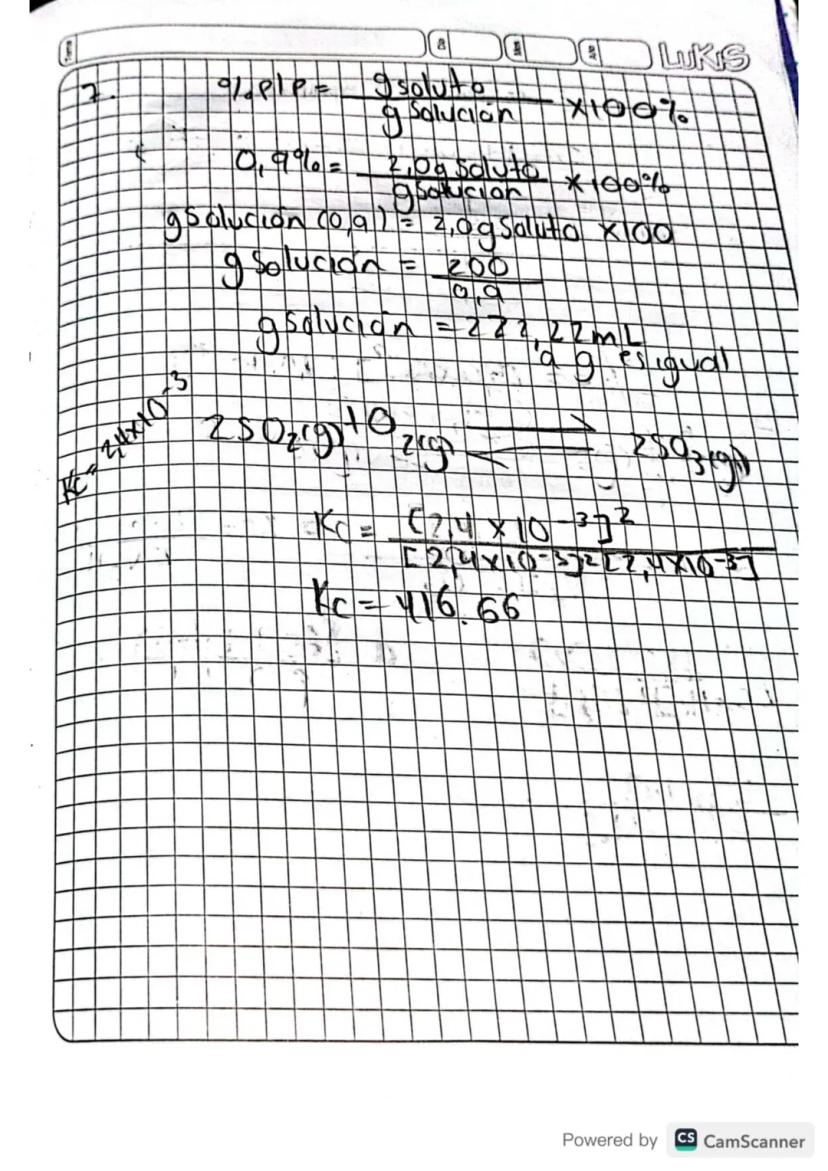 LUKIS
7. %p/p = g soluto / g solución ×100%
0,9% = 2,0g soluto / g solución ×100%
g solución (0,9) = 2,0g soluto ×100
g solución = 200 / 0,9
g solución = 222,22mL
a g es igual
Kc = 2,4×10⁻³
2SO₂(g) + O₂(g) ⇌ 2SO₃(g)
Kc = [2,4 × 10⁻³]² / [2,4×10⁻³]² [2,4×10⁻³]
Kc = 416.66
Powered by CS CamScanner